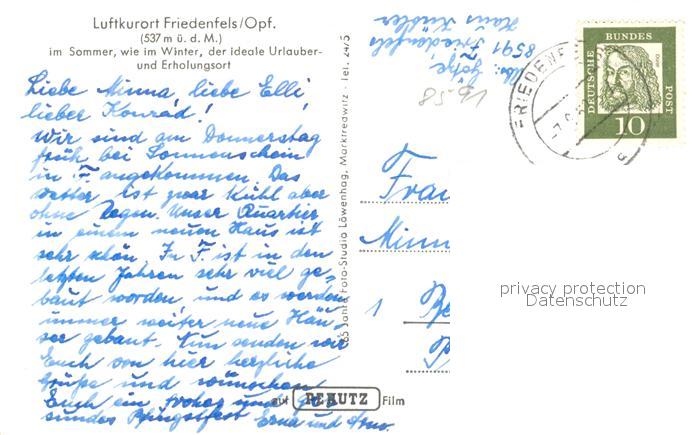 Luftkurort Friedenfels/Opf.
(537 m ü. d. M.)
im Sommer, wie im Winter, der ideale Urlauber-
und Erholungsort
Liebe Minna, liebe Elli,
lieber Konrad!
Wir sind am Donnerstag
früh bei Sonnenschein
in F. angekommen. Das
Wetter ist zwar kühl aber
ohne Regen. Unser Quartier
in einem neuen Haus ist
sehr schön. In F. ist in den
letzten Jahren sehr viel ge-
baut worden, und es werden
immer weiter neue Häu-
ser gebaut. Nun senden wir
Euch von hier herzliche
Grüße und wünschen
Euch ein frohes und ge-
sundes Pfingstfest Erna und
65 Jahre Foto-Studio Löwenhag, Marktredwitz · Tel. 24/5
auf PERUTZ Film
8591 Friedenfels
Haus
DEUTSCHE BUNDES POST
10
FRIEDENF
Frau
Minn
1 Be
privacy protection
Datenschutz